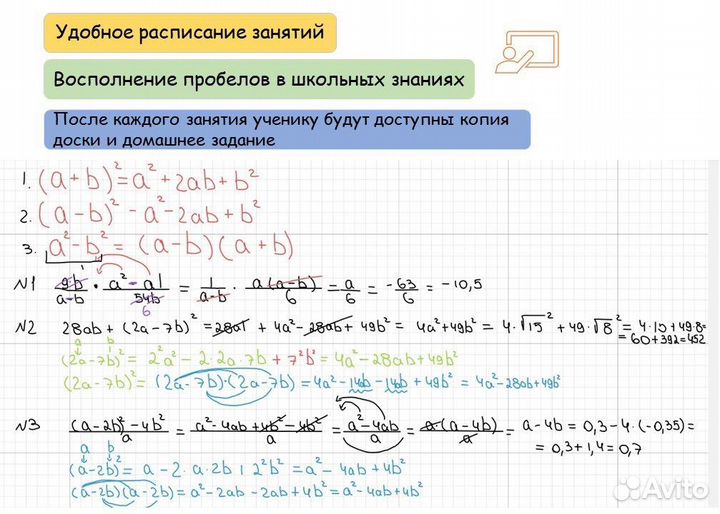 Удобное расписание занятий
Восполнение пробелов в школьных знаниях
После каждого занятия ученику будут доступны копия
доски и домашнее задание
1. (a+b)² = a² + 2ab + b²
2. (a-b)² - a² - 2ab + b²
3. a² - b² = (a-b)(a+b)
N1 9b/(a-b) · (a² - ab)/54b = 1/(a-b) · a(a-b)/6 = a/6 = -63/6 = -10,5
1
6
N2 28ab + (2a-7b)² = 28ab + 4a² - 28ab + 49b² = 4a² + 49b² = 4·√15² + 49·√8² = 4·15 + 49·8=
= 60+392=452
a b
(2a-7b)² = 2²a² - 2·2a·7b + 7²b² = 4a² - 28ab + 49b²
(2a-7b)² = (2a-7b)·(2a-7b) = 4a² - 14ab - 14ab + 49b² = 4a² - 28ab + 49b²
N3 ((a-2b)² - 4b²)/a = (a² - 4ab + 4b² - 4b²)/a = (a² - 4ab)/a = a(a-4b)/a = a-4b = 0,3-4·(-0,35)=
= 0,3+1,4=0,7
a b
(a-2b)² = a - 2·a·2b + 2²b² = a² - 4ab + 4b²
(a-2b)(a-2b) = a² - 2ab - 2ab + 4b² = a² - 4ab + 4b²
Avito